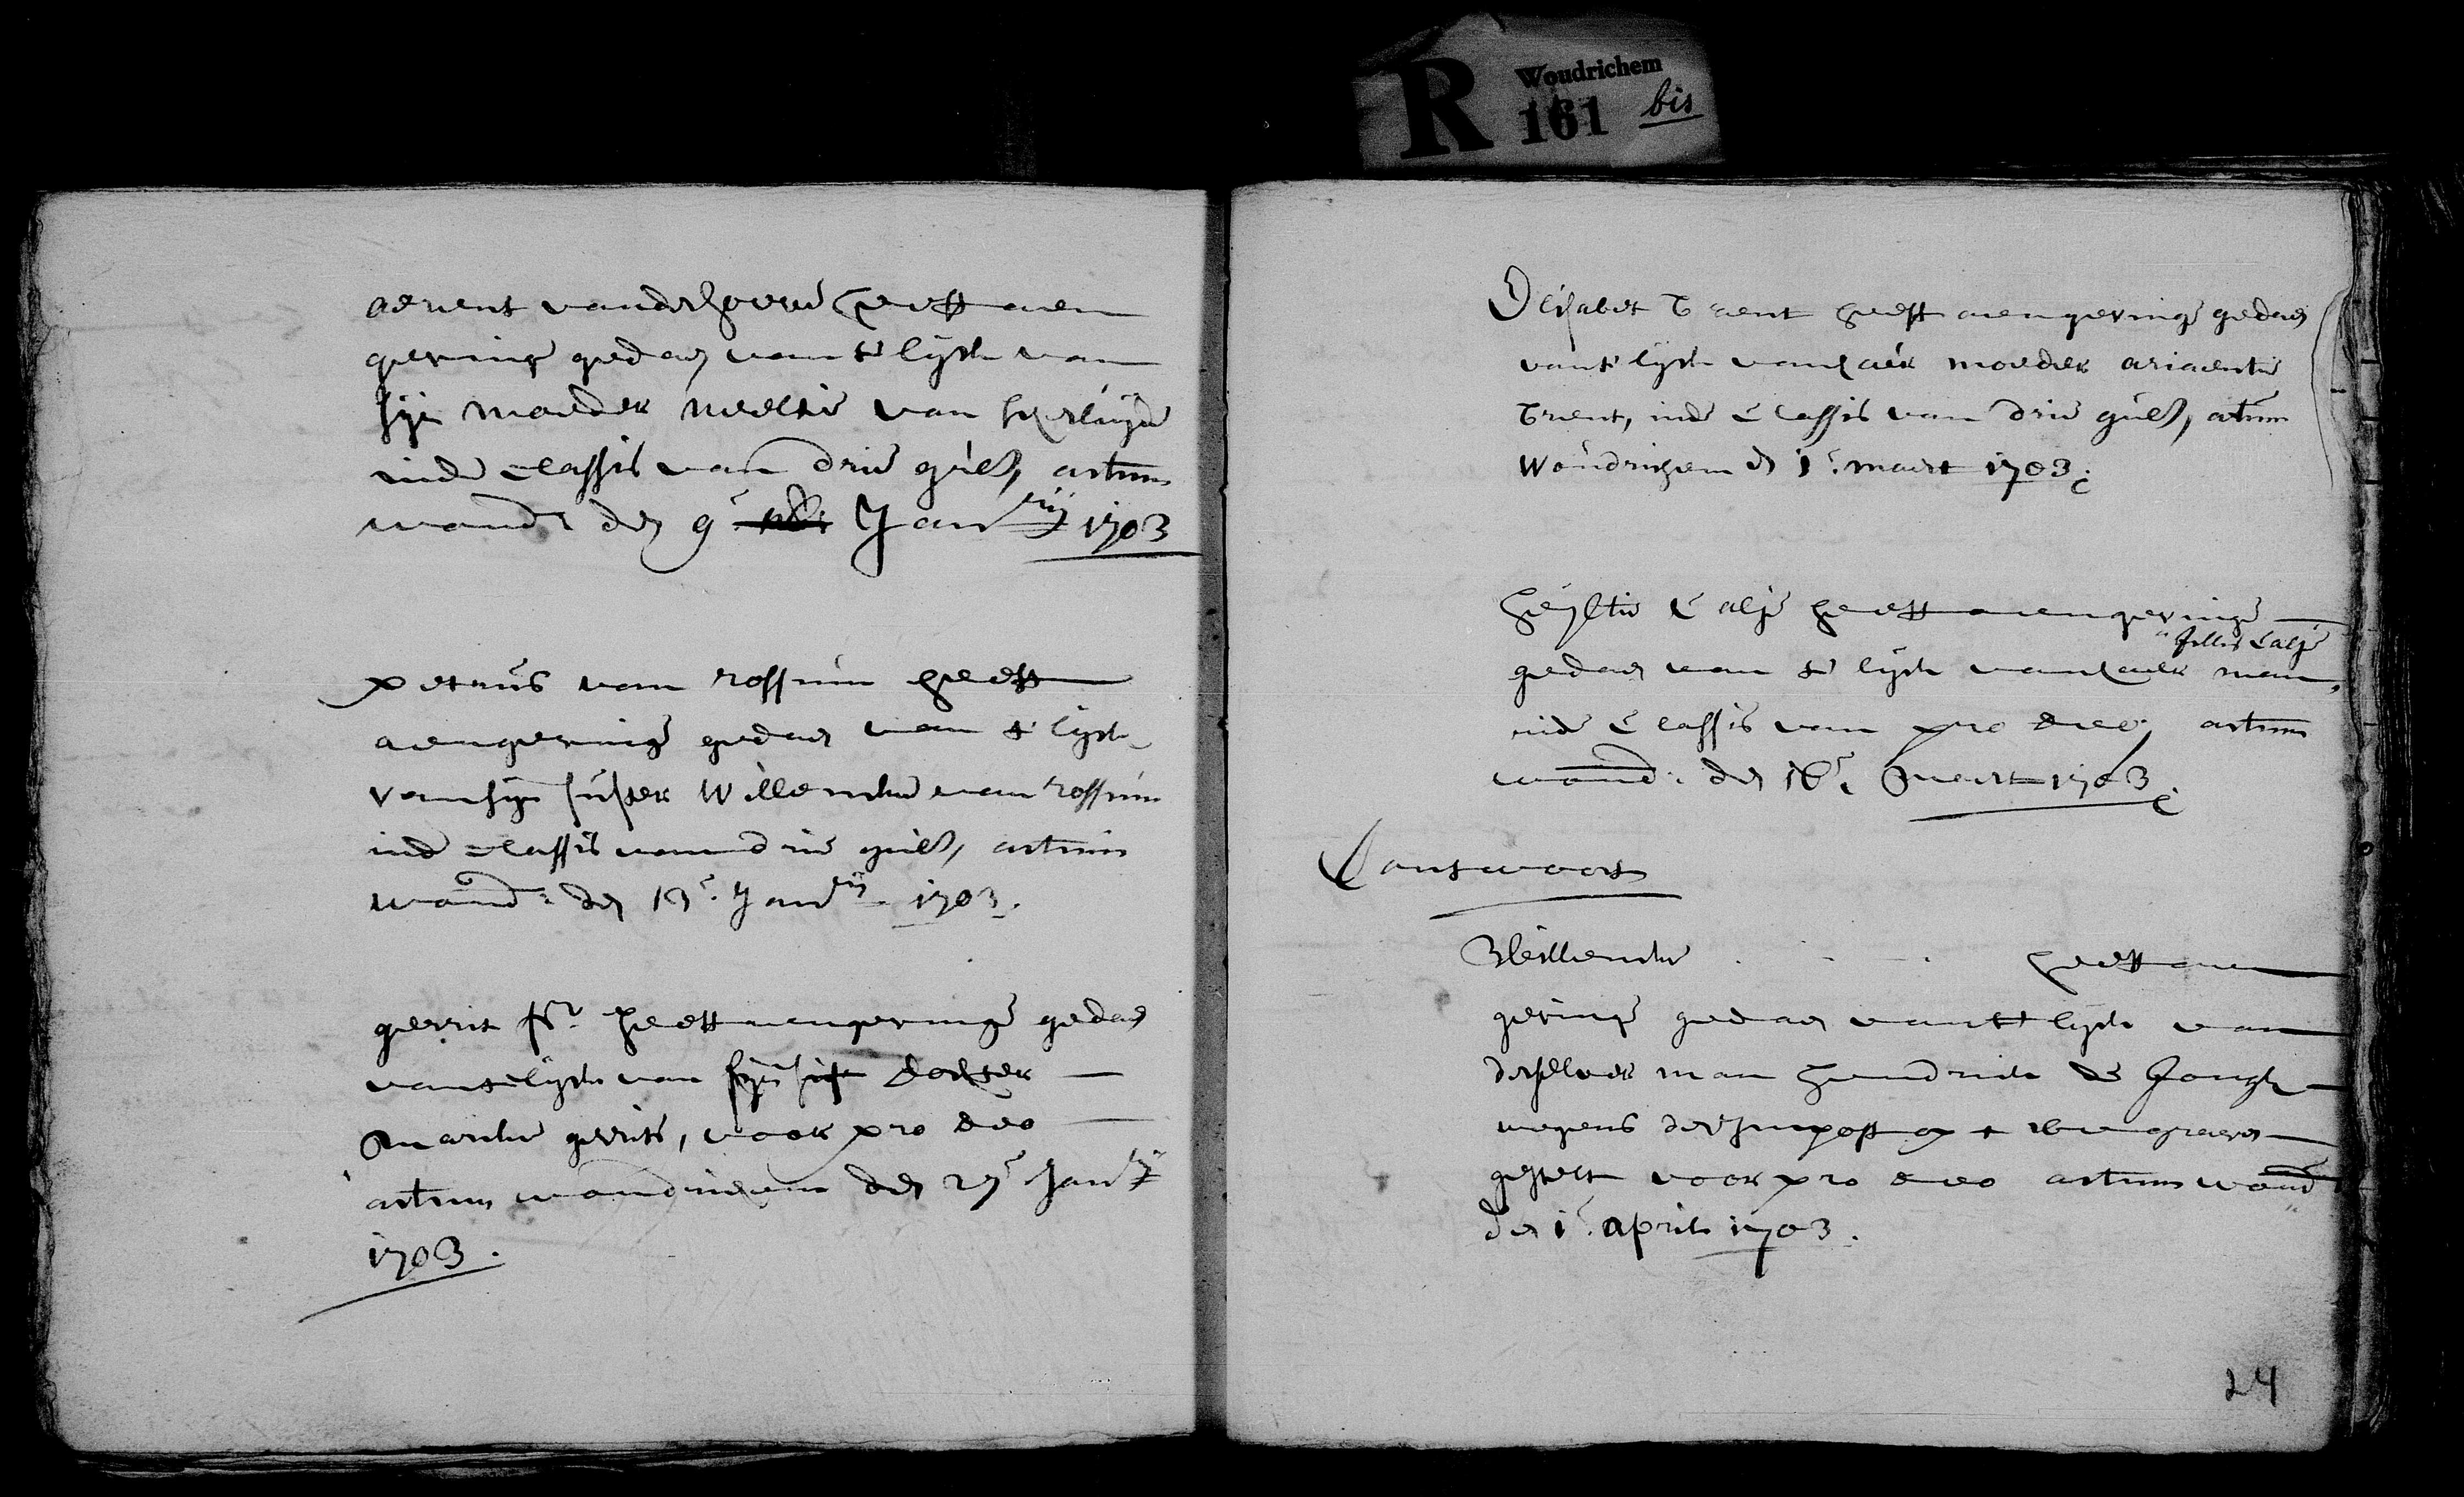 R Woudrichem
161 bis
aerient vander heeff aen
gevinge gedaen van t' lijck van
sijn moeder neeltie van
inde classis van drie guld, actum
woud: den 9e Januarij 1703
petrus van rossum heeft
aengevinge gedaen van t' lijck
van sijn suster Willemke van rossum
inde classis van drie guld, actum
woud: den Januarij 1703.
gerrit heeft aengevinge gedaen
van t lijck van sijn dochter
Marike gerrits, voor pro deo
actum woudrichem den 27e Januarij
1703.
Elisabet Trent heeft aengevinge gedaen
van t' lijck van haer moeder ariaentie
Trent, inde Classis van drie guld, actum
Woudrichem den 1e maert 1703.
heijltie Calje heeft aengevinge
Jillis Calje
gedaen van t' lijck van haer man,
inde Classis van pro deo, actum
woud: den 16e Maert 1703.
Willemke heeft aen
gevinge gedaen van t lijck van
deselver man hendrick de Jongh
wegens de Impost op t begraven
gestelt voor pro deo actum woud:
den 1e april 1703.
24